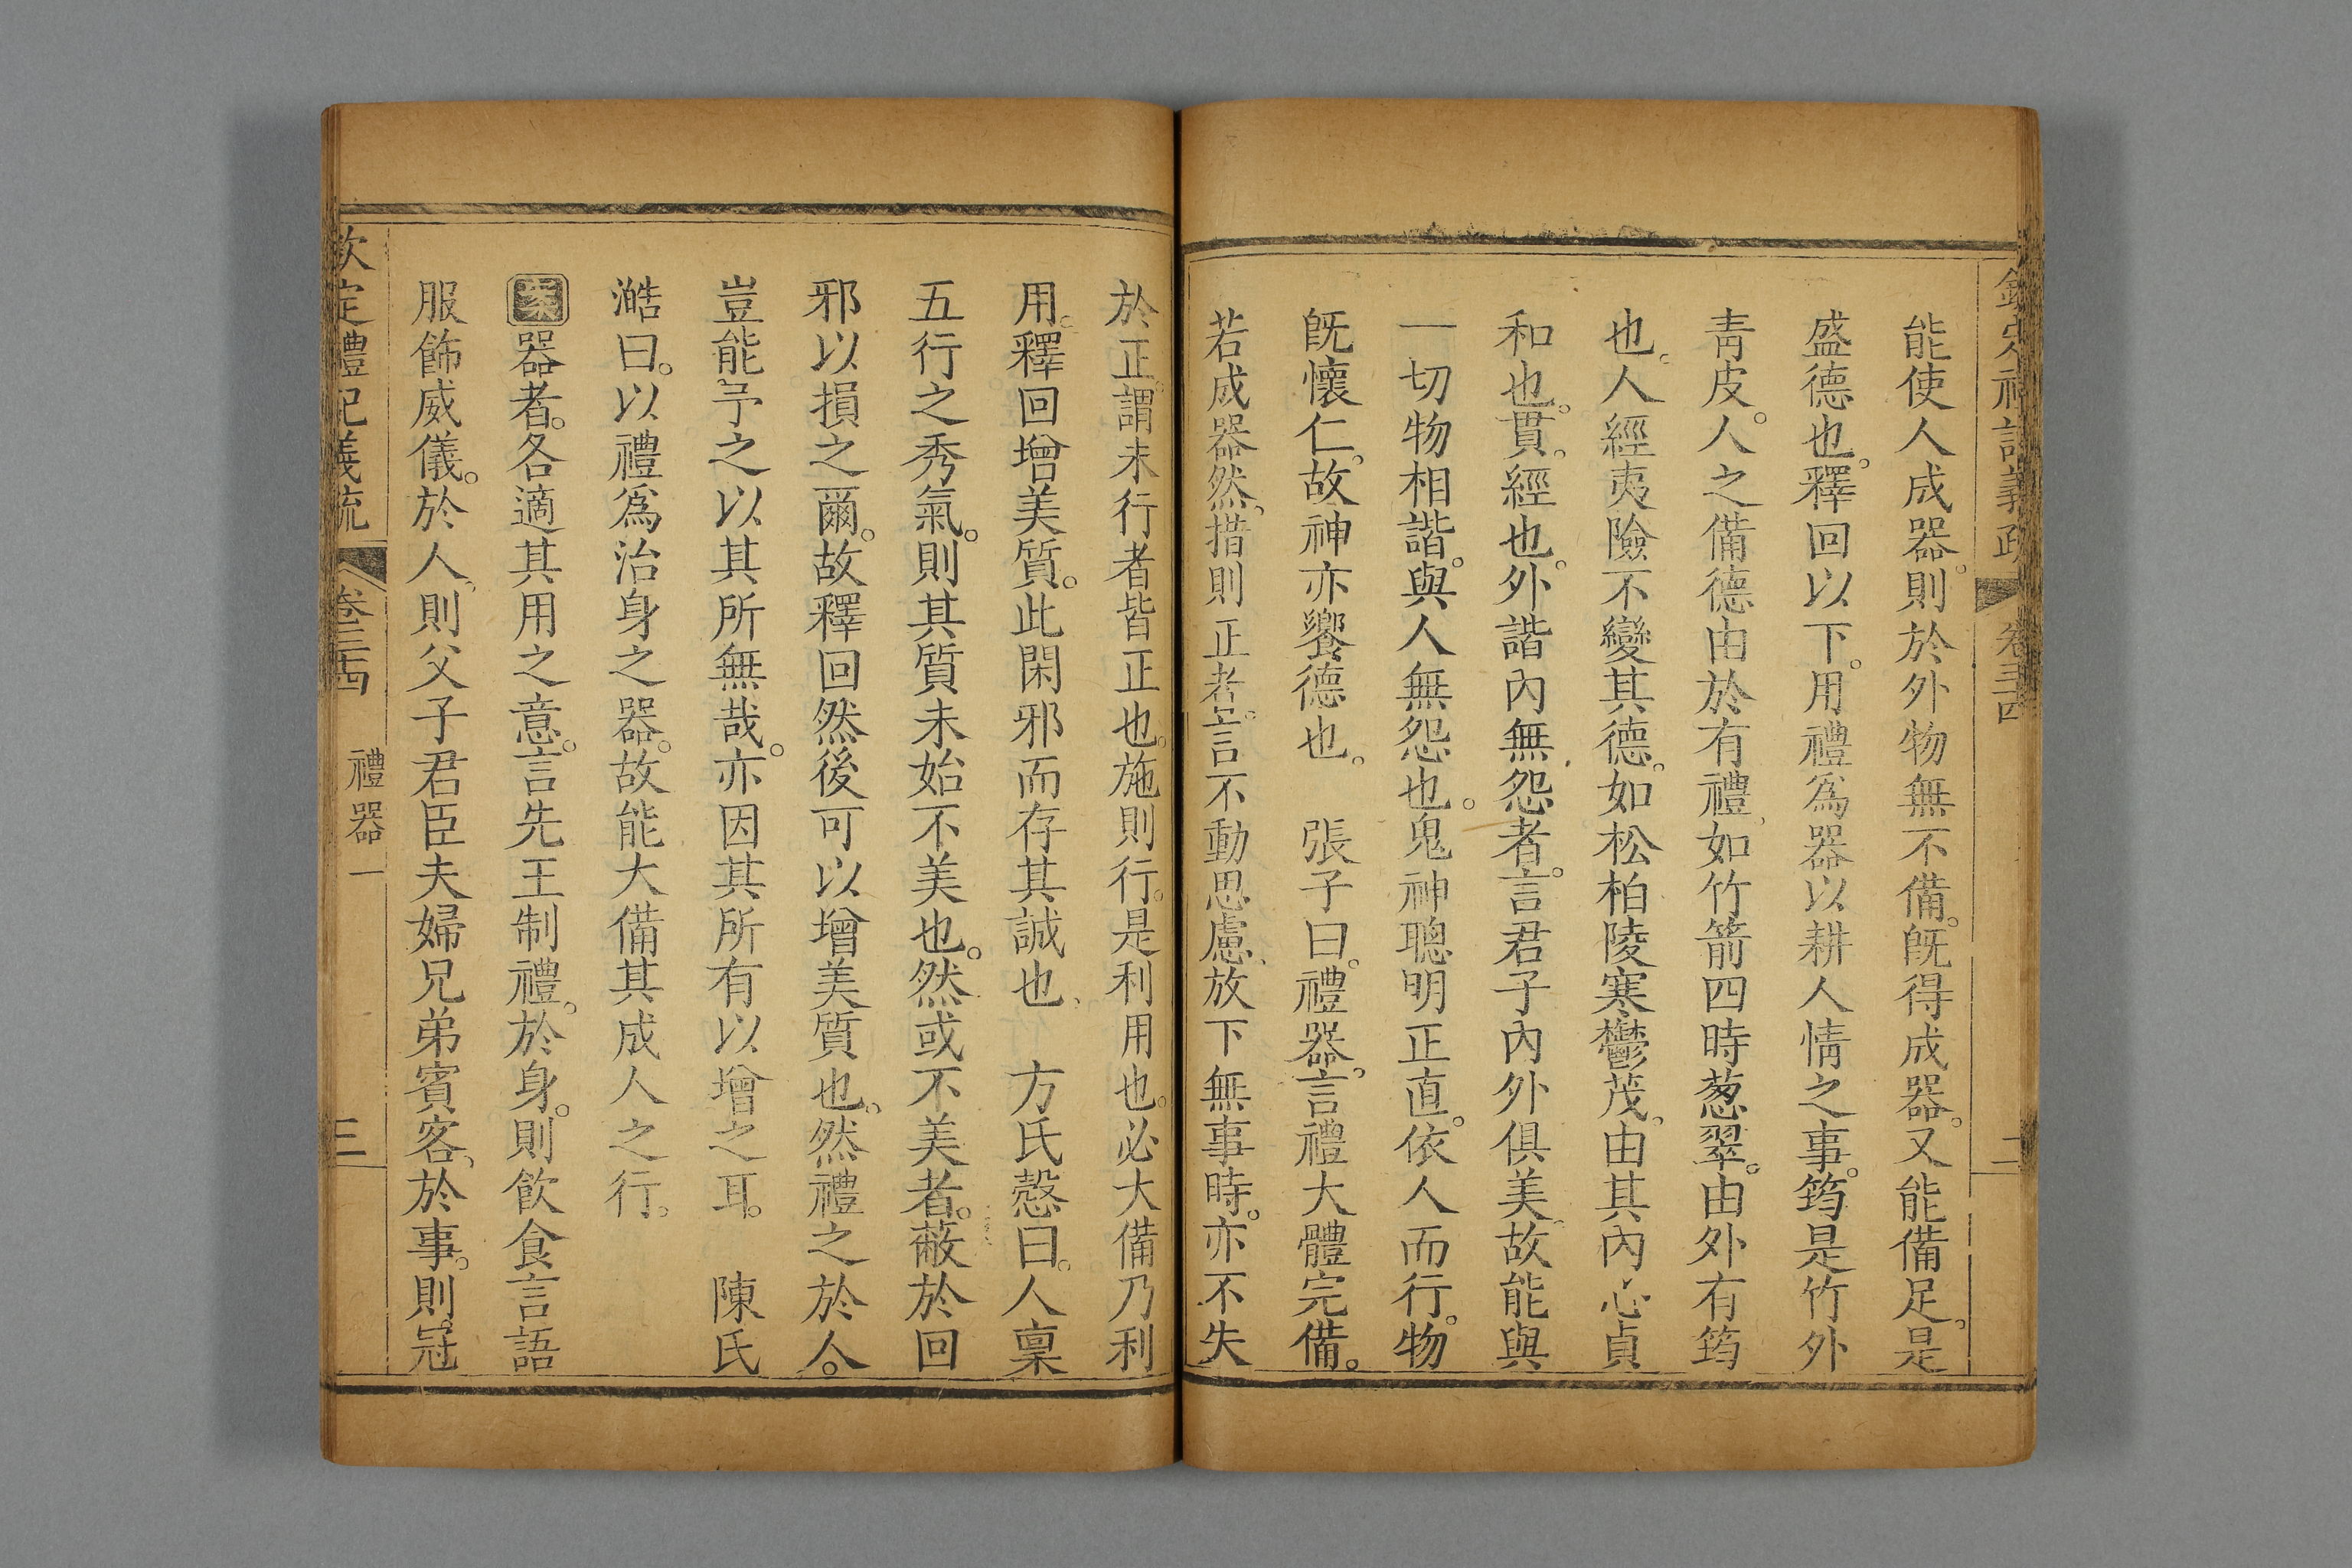 欽定禮記義疏 卷三十四 二
能使人成器。則於外物無不備。旣得成器。又能備足。是
盛德也。釋回以下。用禮爲器以耕人情之事。筠是竹外
靑皮。人之備德由於有禮、如竹箭四時葱翠。由外有筠
也。人經夷險不變其德。如松柏陵寒鬱茂、由其內心貞
和也。貫。經也。外諧內無怨者。言君子內外俱美。故能與
一切物相諧。與人無怨也。鬼神聰明正直。依人而行。物
旣懷仁。故神亦饗德也。 張子曰。禮器。言禮大體完備。
若成器然、措則正者。言不動思慮、放下無事時。亦不失
於正。謂未行者皆正也。施則行。是利用也。必大備乃利
用。釋回增美質。此閑邪而存其誠也、 方氏慤曰。人稟
五行之秀氣。則其質未始不美也。然或不美者。蔽於回
邪以損之爾。故釋回然後可以增美質也。然禮之於人。
豈能予之以其所無哉。亦因其所有以增之耳。 陳氏
澔曰。以禮爲治身之器。故能大備其成人之行。
案器者。各適其用之意。言先王制禮。於身。則飮食言語
服飾威儀。於人、則父子君臣夫婦兄弟賓客、於事。則冠
欽定禮記義疏 卷三十四 禮器一 三